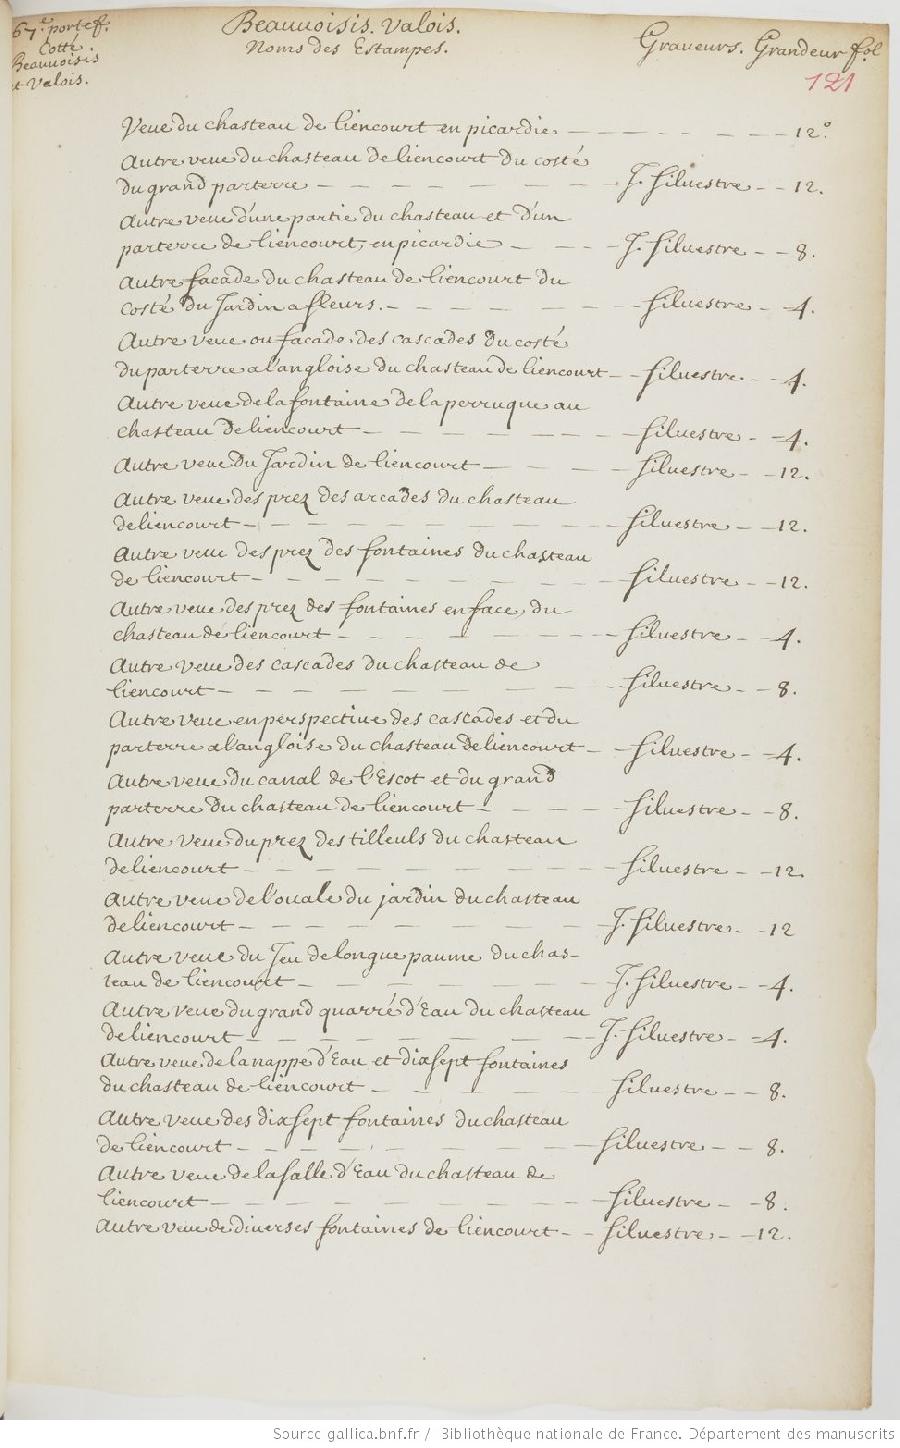 67e portef. Beauuoisis. Valois.
Cotté. Noms des Estampes. Graueurs. Grandeur fol
Beauuoisis
et Valois.
121
Veue du chasteau de liencourt en picardie. 12°.
Autre veue du chasteau de liencourt du costé
du grand parterre J. Siluestre 12.
Autre veue d'une partie du chasteau et d'un
parterre de liencourt, en picardie J. Siluestre 8.
Autre facade du chasteau de liencourt du
costé du Jardin a fleurs. Siluestre 4.
Autre veue ou facade des cascades du costé
du parterre a l'angloise du chasteau de liencourt Siluestre. 4.
Autre veue de la fontaine de la perruque au
chasteau de liencourt Siluestre 4.
Autre veue du Jardin de liencourt Siluestre 12.
Autre veue des prez des arcades du chasteau
de liencourt Siluestre 12.
Autre veue des prez des fontaines du chasteau
de liencourt Siluestre 12.
Autre veue des prez des fontaines en face du
chasteau de liencourt Siluestre 4.
Autre veue des cascades du chasteau de
liencourt Siluestre 8.
Autre veue en perspectiue des cascades et du
parterre a l'angloise du chasteau de liencourt Siluestre 4.
Autre veue du canal de l'Escot et du grand
parterre du chasteau de liencourt Siluestre 8.
Autre veue du prez des tilleuls du chasteau
de liencourt Siluestre 12.
Autre veue de l'ouale du jardin du chasteau
de liencourt J. Siluestre. 12
Autre veue du Jeu de longue paume du chas-
teau de liencourt J. Siluestre 4.
Autre veue du grand quarré d'Eau du chasteau
de liencourt J. Siluestre 4.
Autre veue de la nappe d'Eau et dix sept fontaines
du chasteau de liencourt Siluestre 8.
Autre veue des dix sept fontaines du chasteau
de liencourt Siluestre 8.
Autre veue de la salle d'Eau du chasteau de
liencourt Siluestre 8.
Autre veue de diuerses fontaines de liencourt Siluestre 12.
Source gallica.bnf.fr / Bibliothèque nationale de France. Département des manuscrits